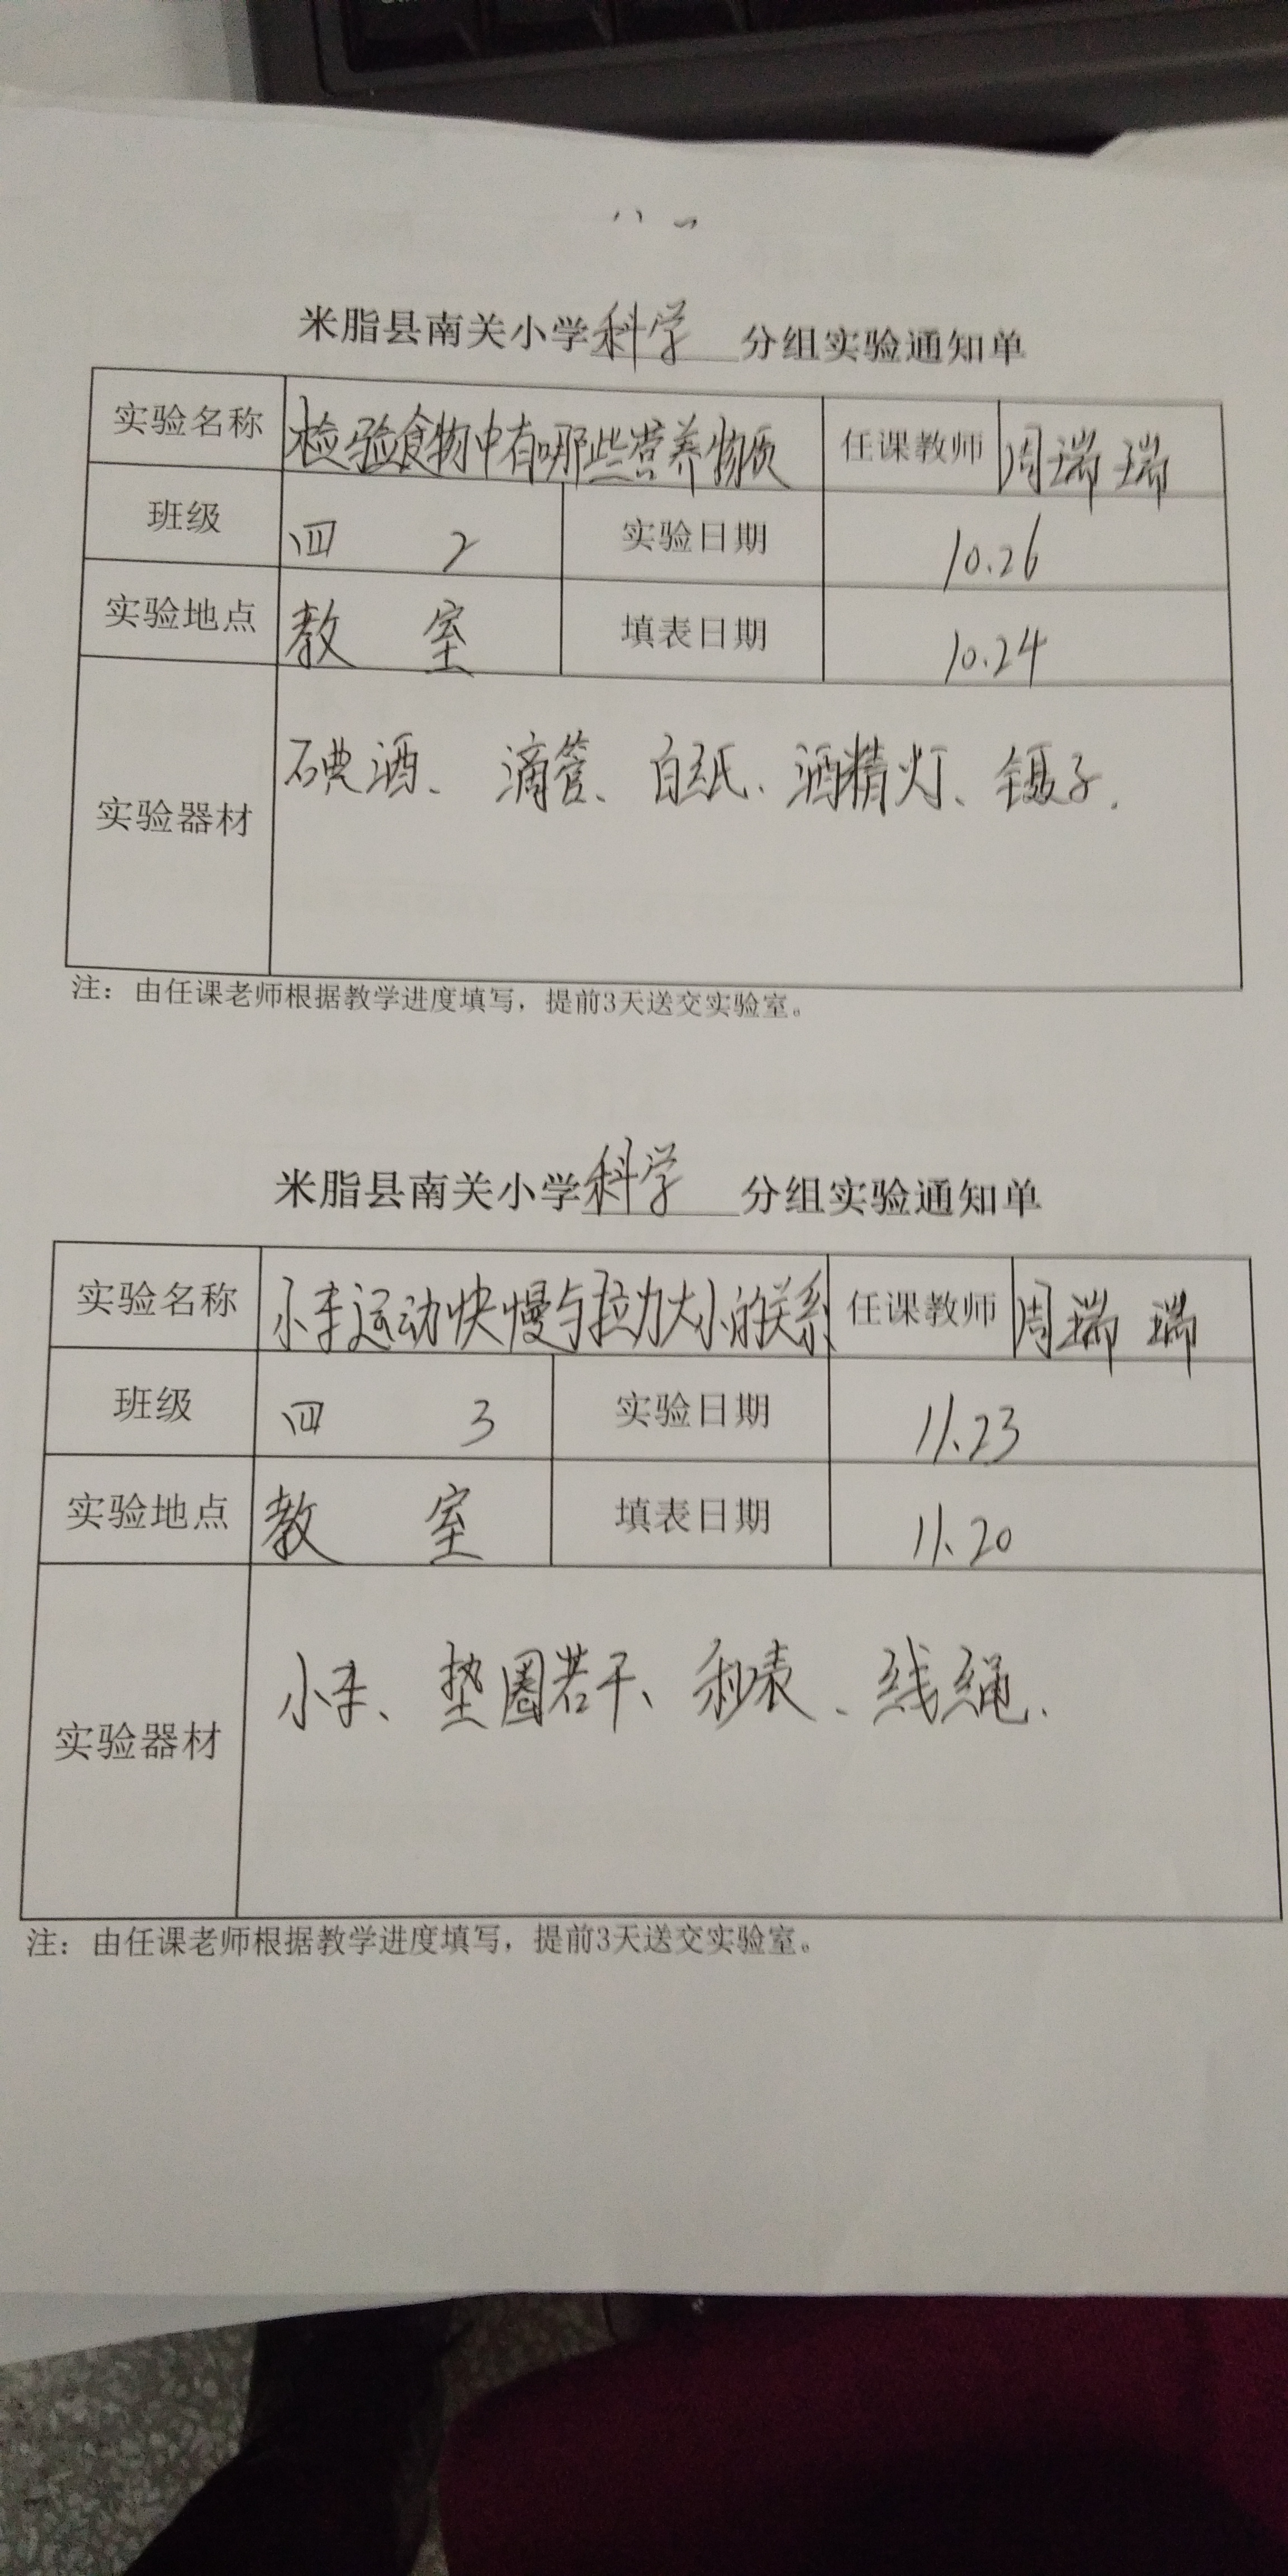 米脂县南关小学科学 分组实验通知单
实验名称 检验食物中有哪些营养物质 任课教师 周瑞瑞
班级 四 2 实验日期 10.26
实验地点 教室 填表日期 10.24
实验器材 碘酒、滴管、白纸、酒精灯、镊子.
注：由任课老师根据教学进度填写，提前3天送交实验室。
米脂县南关小学科学 分组实验通知单
实验名称 小车运动快慢与拉力大小的关系 任课教师 周瑞瑞
班级 四 3 实验日期 11.23
实验地点 教室 填表日期 11.20
实验器材 小车、垫圈若干、秒表、线绳、
注：由任课老师根据教学进度填写，提前3天送交实验室。